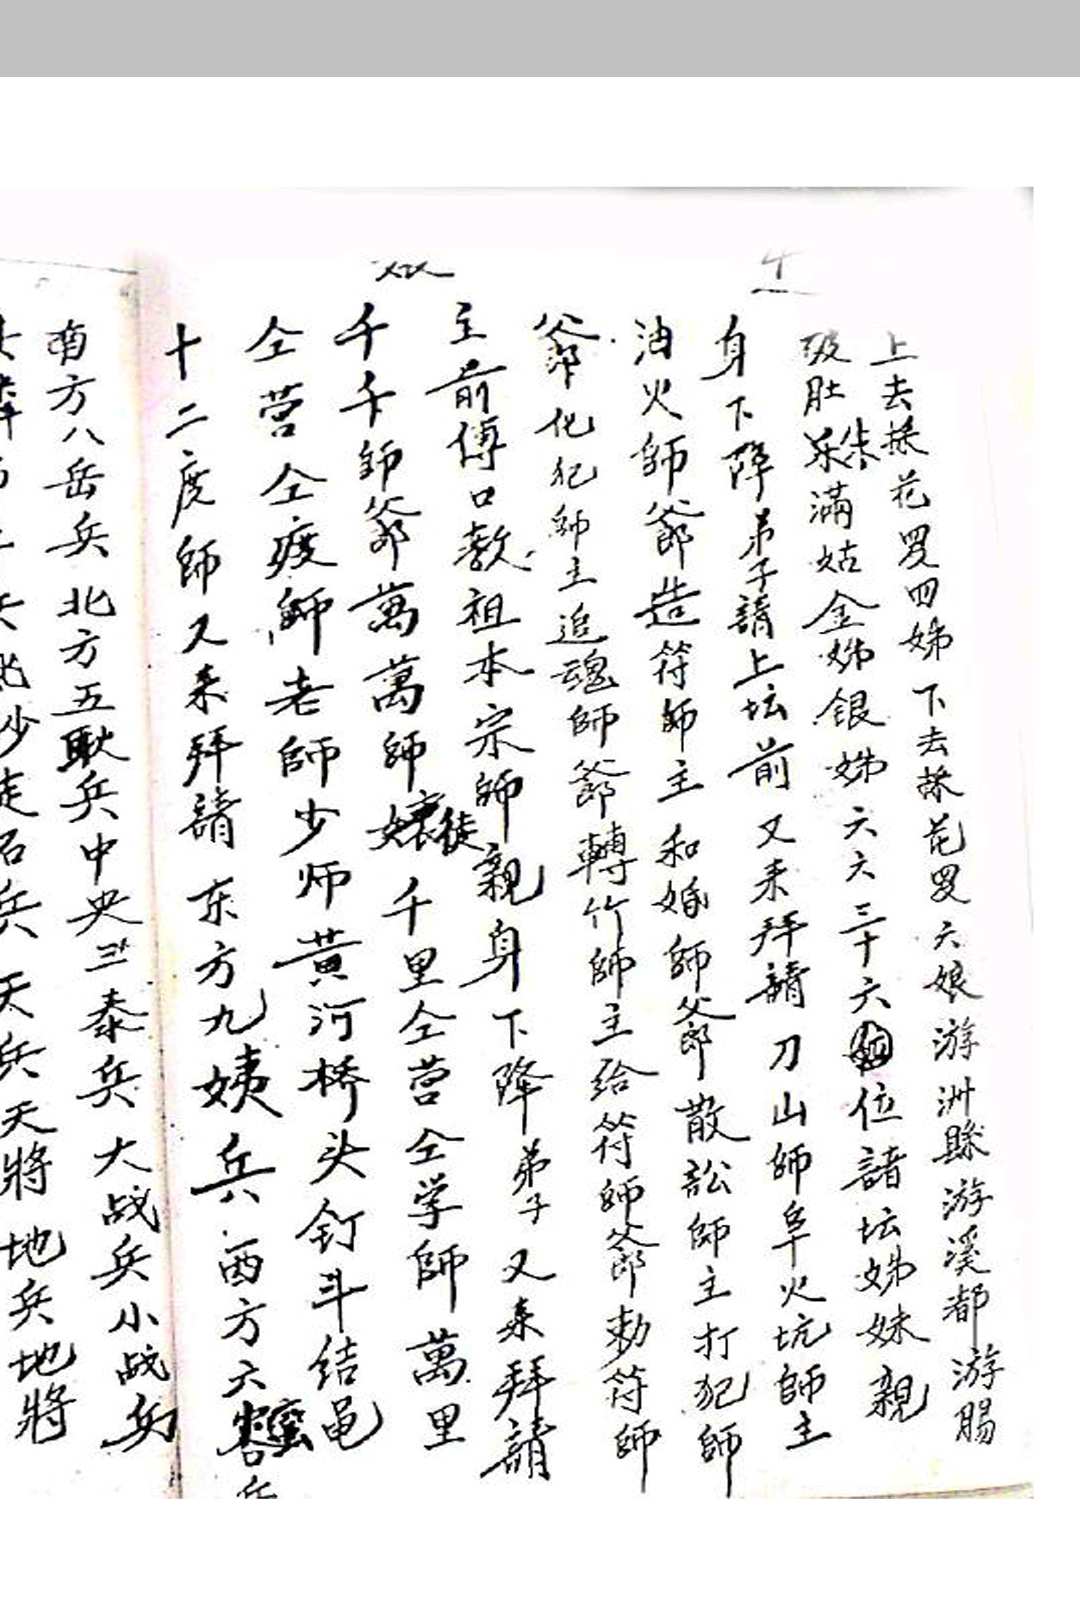 上去採花男四姊下去採花男六娘游洲縣游溪都游賜
级肚朵滿姑金姊銀姊六六三十六位諸坛姊妹親
身下降弟子請上坛前又来拜請刀山師阜火坑師主
油火師爺造符師主和婚師爺散訟師主打犯師
爺化犯師主追魂師爺轉竹師主给符師爺勅符師
主前傳口教祖本宗師親身下降弟子又来拜請
千千師爺萬萬師徒千里仝营仝学師萬里
仝营仝度師老師少师黄河桥头釘斗结黾
十二度師又来拜請东方九姨兵西方六蠻兵
南方八岳兵北方五耿兵中央三泰兵大战兵小战兵
走石兵天兵天將地兵地將